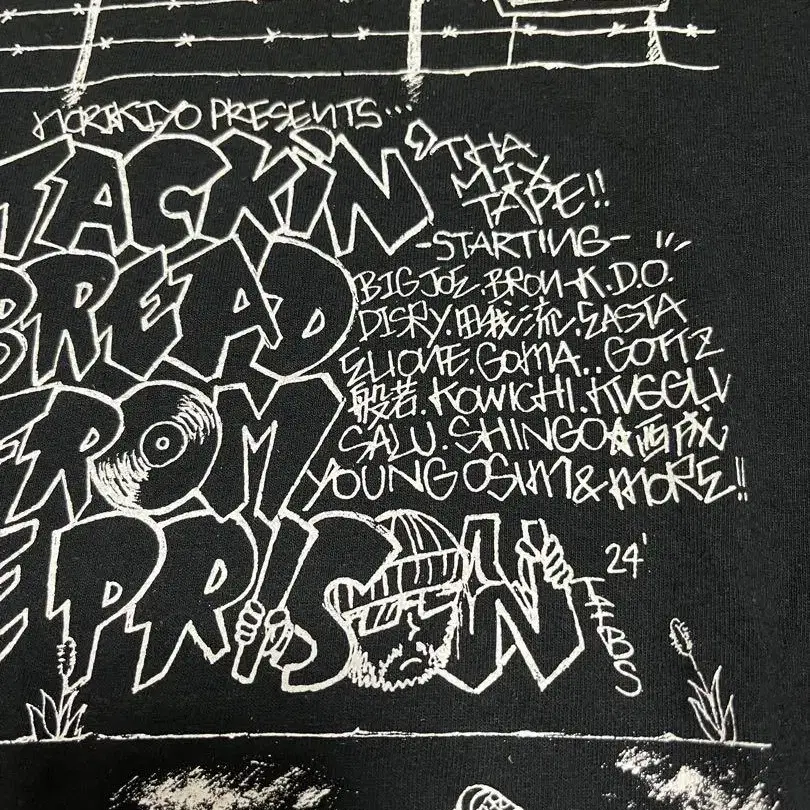 NORIKIYO PRESENTS...
TACKIN' THA
MIX
TAPE!!
BREAD
-STARTING-
BIG JOE. BRON-K. D.O.
DISRY. 田我流. EASTA
ELIONE. GOMA.. GOTTZ
般若. KOWICHI. KVGGLV
SALU. SHINGO★西成
YOUNG OSHM & MORE!!
FROM
E PRISON
24'
TEBS